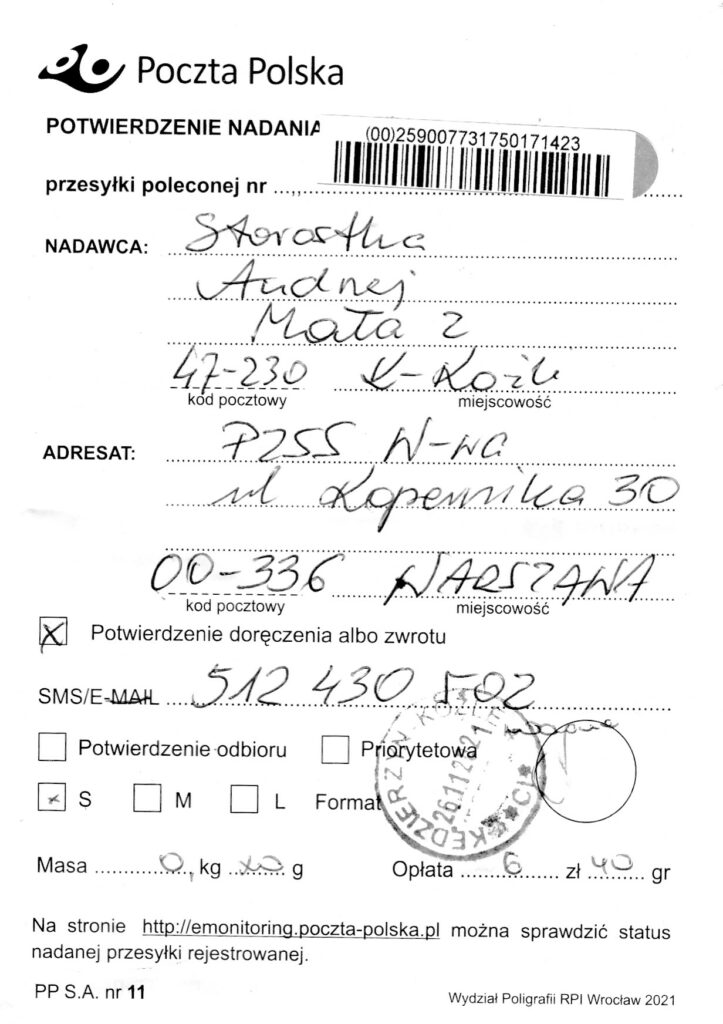 Poczta Polska
POTWIERDZENIE NADANIA
(00)259007731750171423
przesyłki poleconej nr
NADAWCA: Storostka
Andrzej
Mała 2
47-230 K-Koźle
kod pocztowy miejscowość
ADRESAT: PZSS W-wa
ul Kopernika 30
00-336 WARSZAWA
kod pocztowy miejscowość
X Potwierdzenie doręczenia albo zwrotu
SMS/E-MAIL 512 430 502
Potwierdzenie odbioru Priorytetowa
x S M L Format
KĘDZIERZYN KOŹL
26.11.2
Masa 0, kg g
Opłata 6 zł 40 gr
Na stronie http://emonitoring.poczta-polska.pl można sprawdzić status
nadanej przesyłki rejestrowanej.
PP S.A. nr 11
Wydział Poligrafii RPI Wrocław 2021